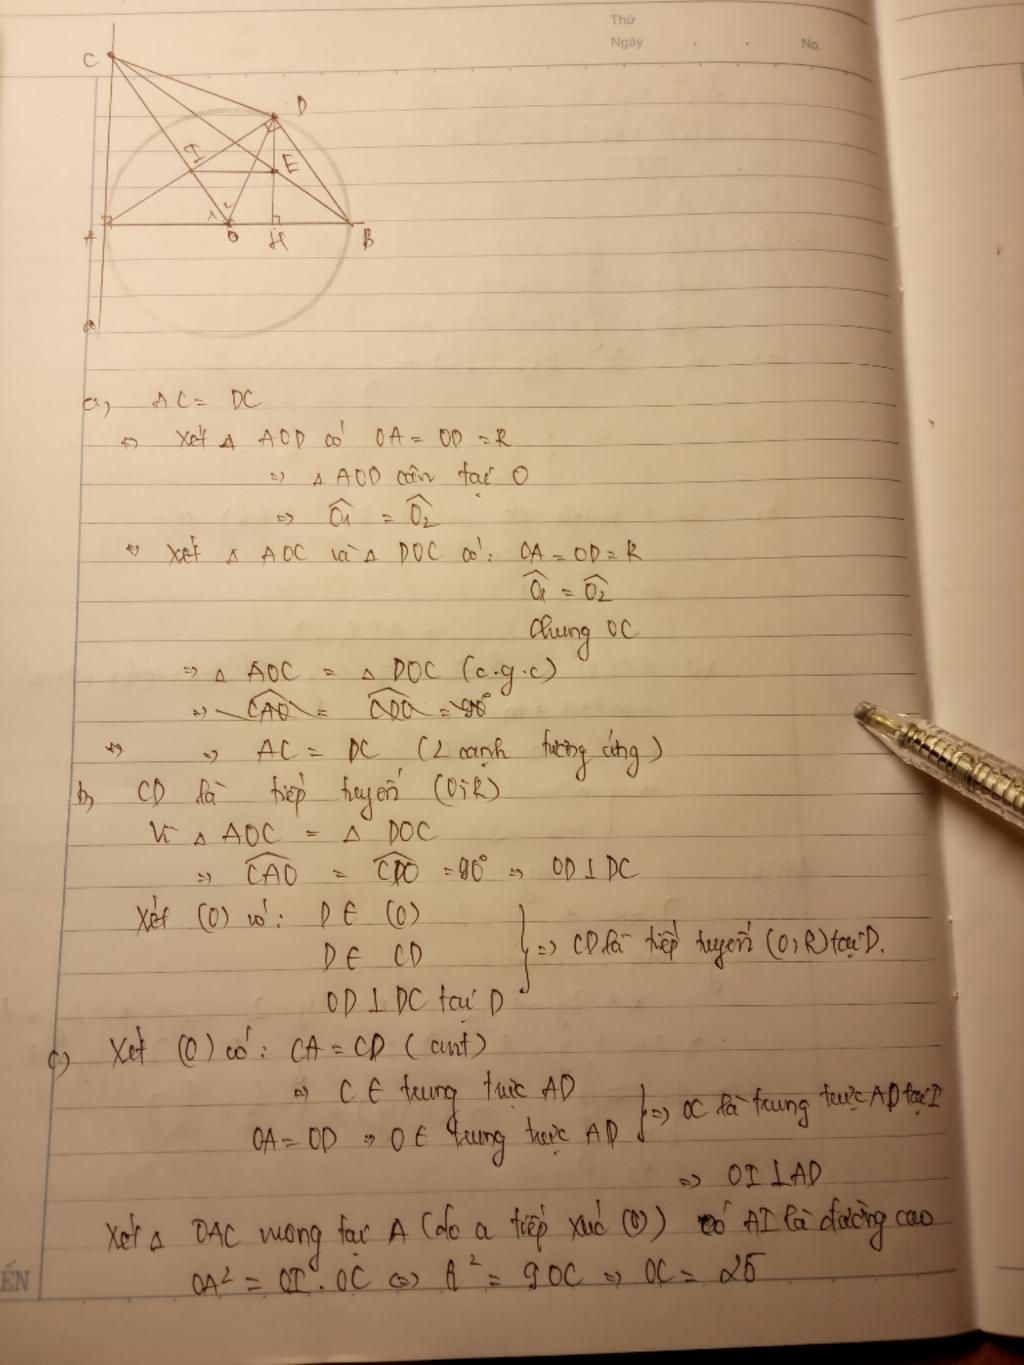 Thứ
Ngày . . No.
C
D
I
E
1 2
A O H B
a
a, AC = DC
Xét Δ AOD có OA = OD = R
=> Δ AOD cân tại O
=> O1 = O2
Xét Δ AOC và Δ DOC có: OA = OD = R
O1 = O2
Chung OC
=> Δ AOC = Δ DOC (c.g.c)
=> CAO = CDO = 90°
=> AC = DC (2 cạnh tương ứng)
b, CD là tiếp tuyến (O;R)
Vì Δ AOC = Δ DOC
=> CAO = CDO = 90° => OD ⊥ DC
Xét (O) có: D ∈ (O)
D ∈ CD
OD ⊥ DC tại D
=> CD là tiếp tuyến (O,R) tại D.
c) Xét (O) có: CA = CD (cmt)
=> C ∈ trung trực AD
OA = OD => O ∈ trung trực AD
=> OC là trung trực AD tại I
=> OI ⊥ AD
Xét Δ OAC vuông tại A (do a tiếp xúc (O)) có AI là đường cao
OA² = OI . OC <=> R² = 9 OC => OC = 25
ẾN